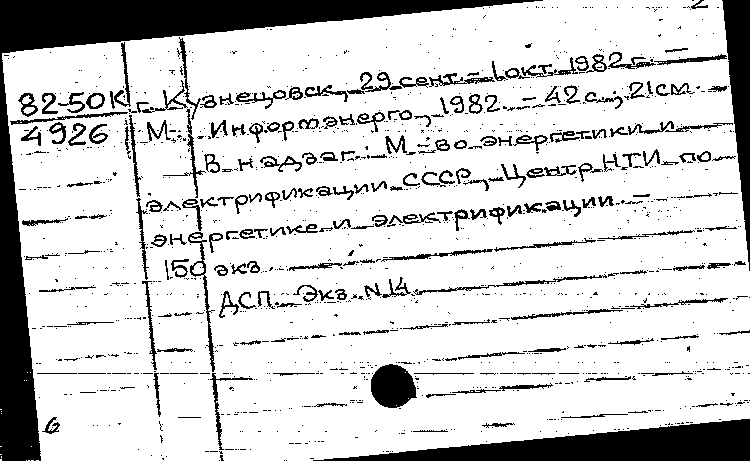 2
82-50К г. Кузнецовск, 29 сент. - 1 окт. 1982 г. -
4926 М.: Информэнерго, 1982. - 42 с.; 21 см.
В надзаг.: М-во энергетики и
электрификации СССР, Центр НТИ по
энергетике и электрификации. -
150 экз.
ДСП. Экз. N 14.
6